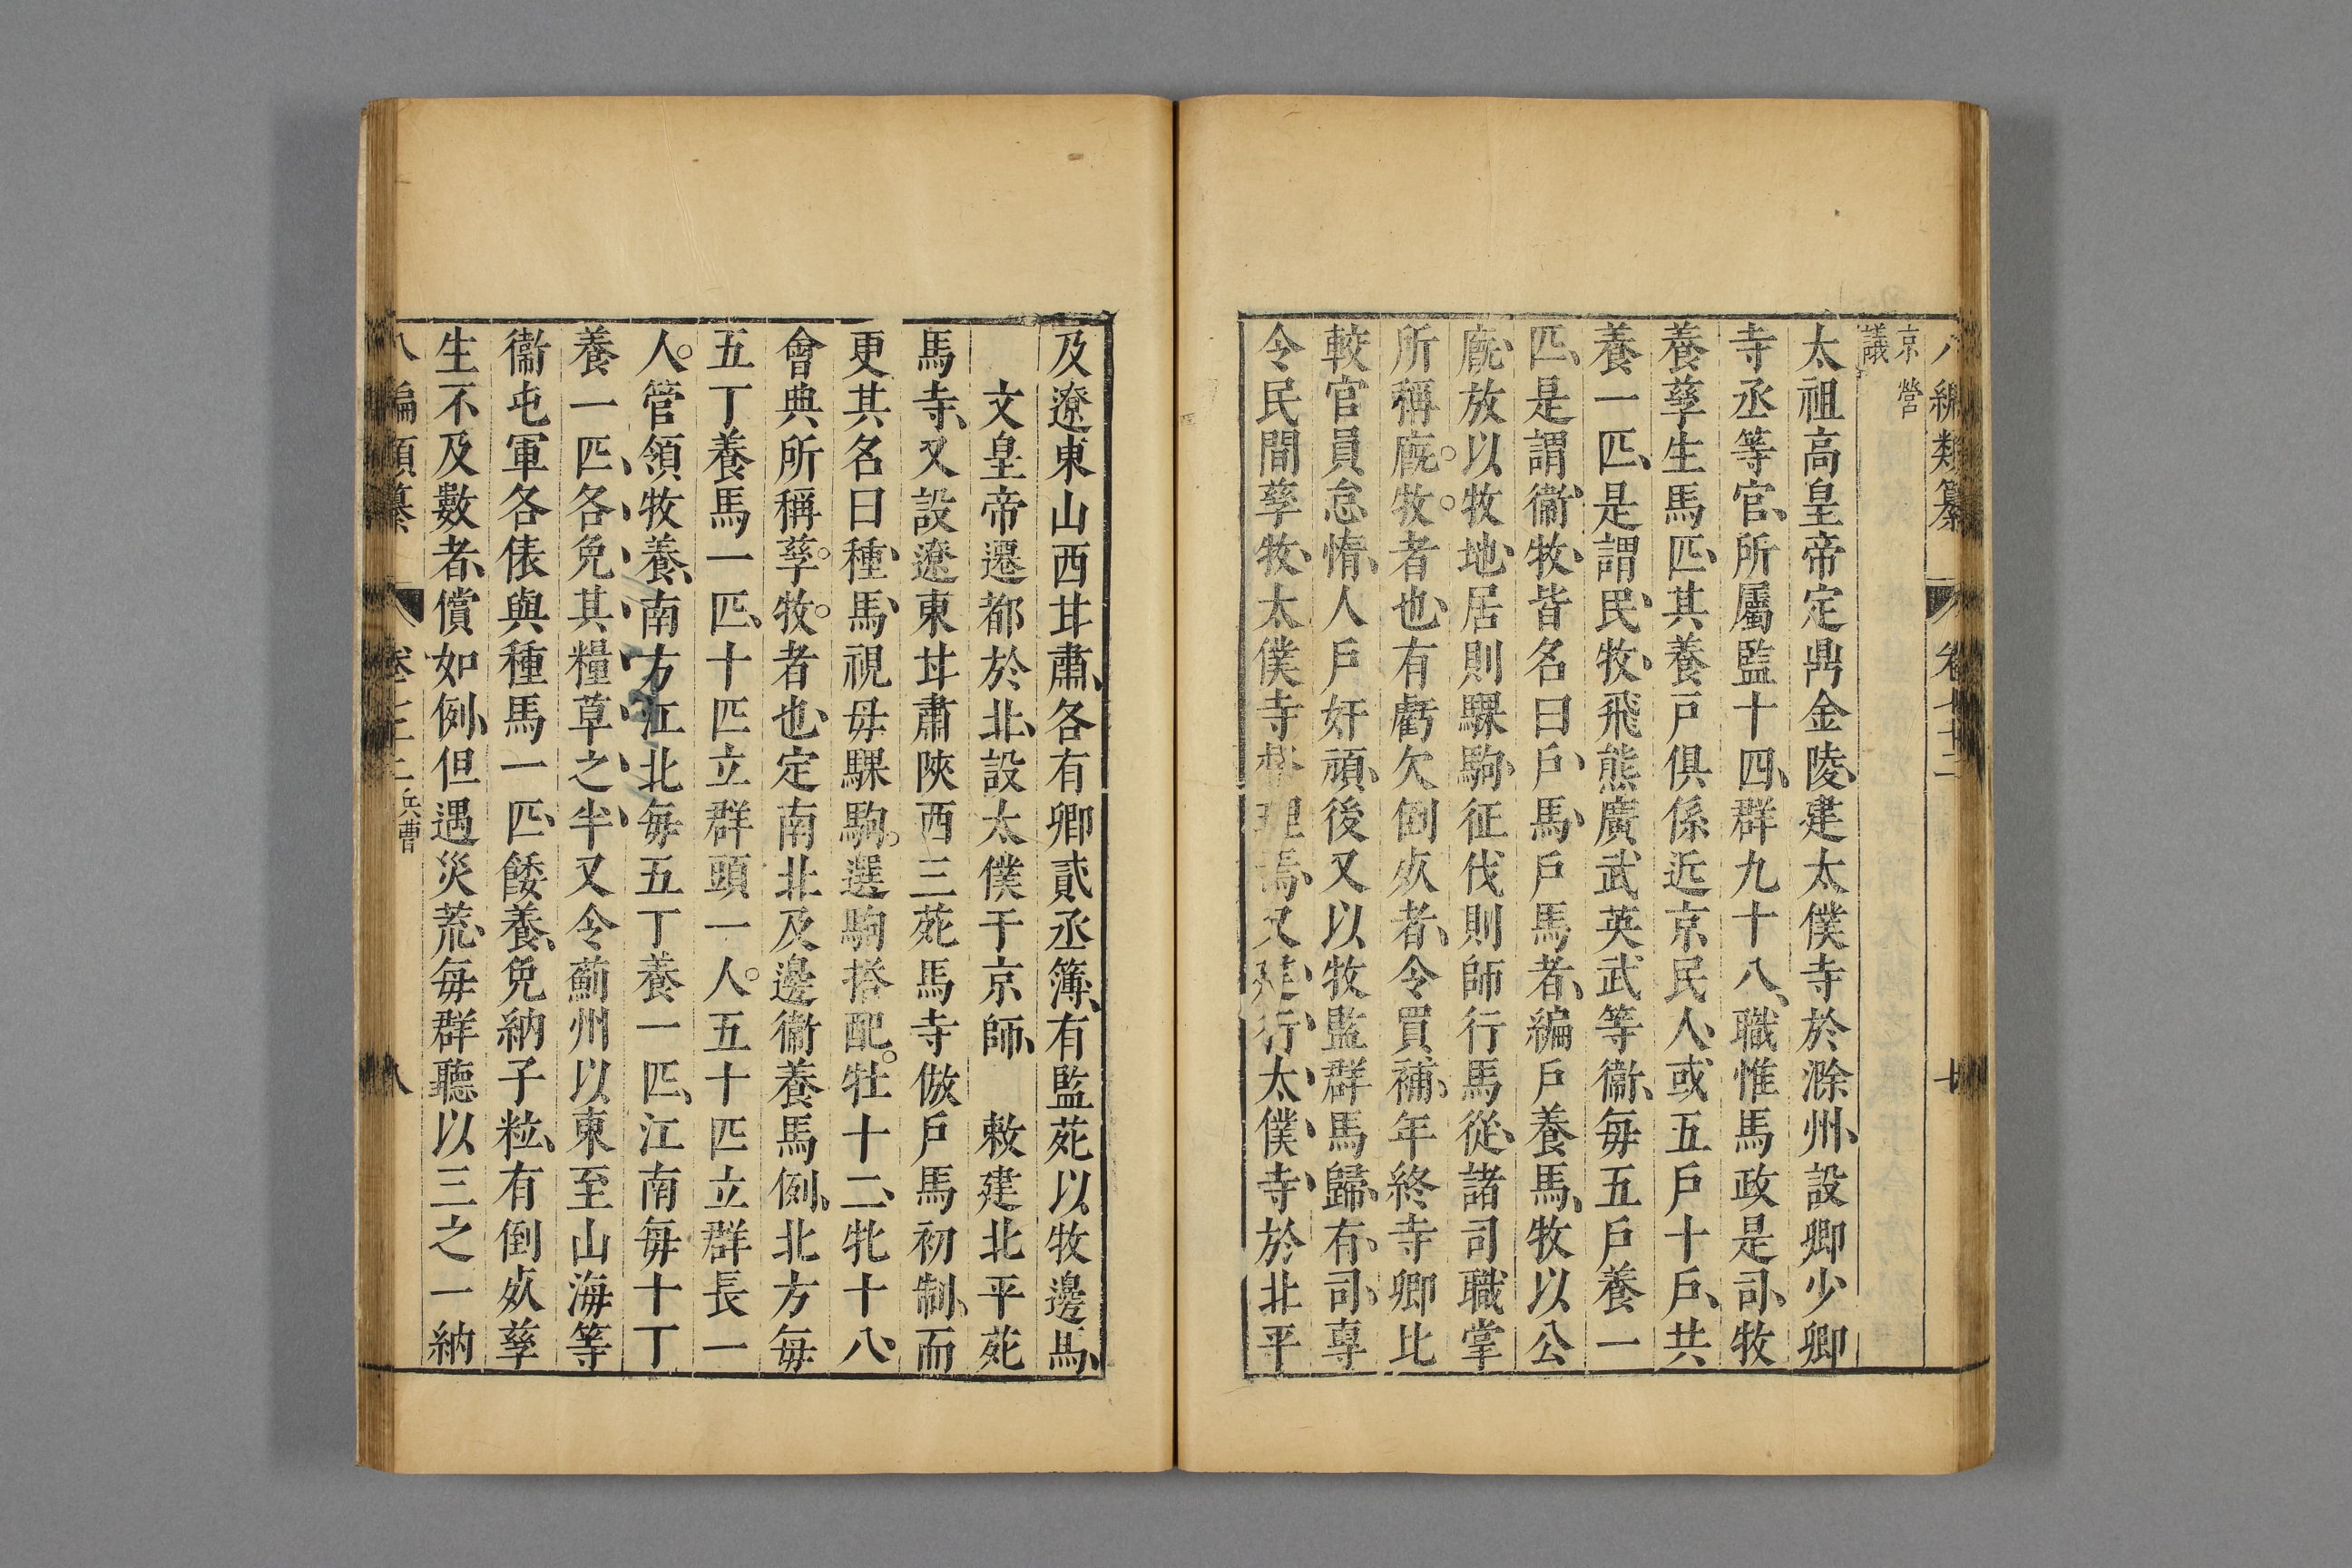 八編類纂 卷七十二
京營
議
太祖高皇帝定鼎金陵、建太僕寺於滁州、設卿少卿
寺丞等官、所屬監十四、群九十八、職惟馬政是司、牧
養孳生馬匹、其養戸俱係近京民人、或五戸十戸、共
養一匹、是謂民牧、飛熊廣武英武等衞、每五戸養一
匹、是謂衞牧、皆名曰戸馬、戸馬者、編戸養馬、牧以公
廐、放以牧地、居則騍駒、征伐則師行馬從、諸司職掌
所稱廐牧者也、有虧欠倒㱥者、令買補、年終寺卿比
較官員怠惰、人戸奸頑、後又以牧監群馬歸、有司、專
令民間孳牧、太僕寺督理焉、又建行太僕寺於北平
及遼東山西甘肅、各有卿貳丞簿、有監苑以牧邊馬、
文皇帝遷都於北、設太僕于京師、 敕建北平苑
馬寺、又設遼東甘肅陝西三苑馬寺倣戸馬初制、而
更其名曰種馬、視毋騍駒。選駒搭配。牡十二、牝十八、
會典所稱孳牧者也、定南北及邊衞養馬例、北方每
五丁養馬一匹、十匹立群頭一人。五十匹立群長一
人。管領牧養、南方江北每五丁養一匹、江南每十丁
養一匹、各免其糧草之半、又令薊州以東至山海等
衞屯軍各俵與種馬一匹、餧養、免納子粒、有倒㱥孳
生不及數者、償如例、但遇災荒、每群聽以三之一納
八編類纂 卷七十二 兵曹 八